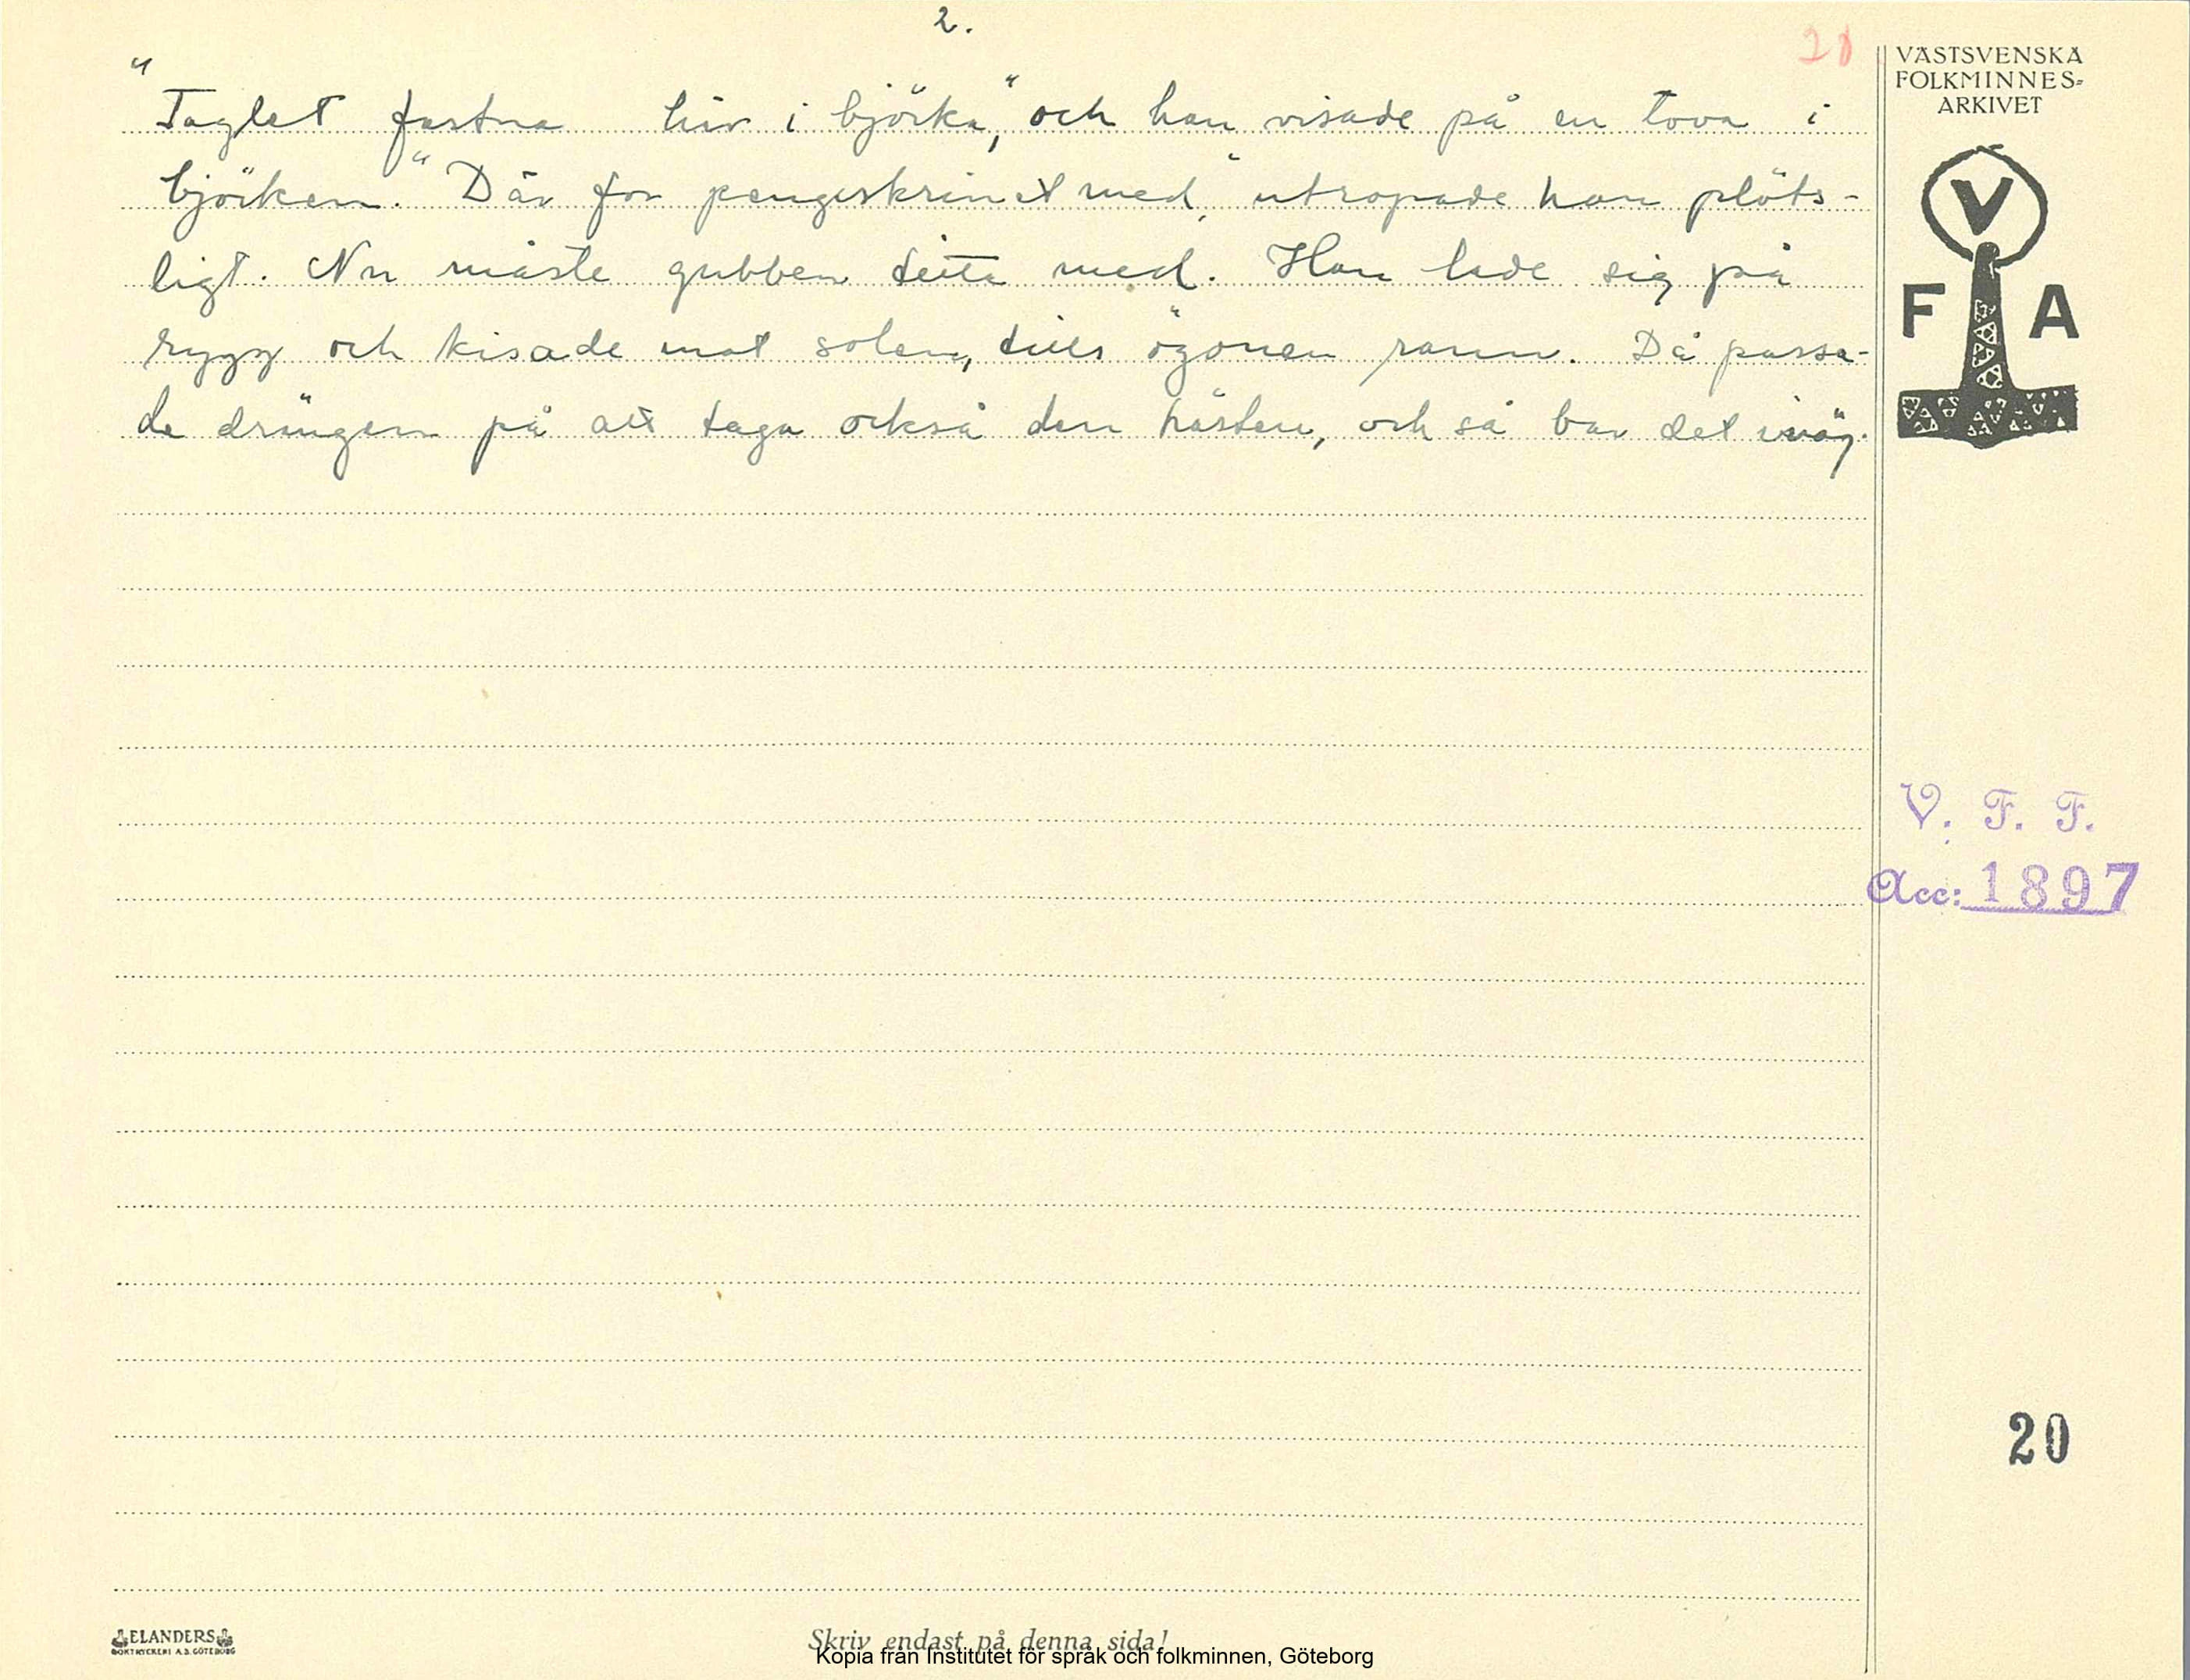 2.
20
"Taglet fastna här i björka," och han visade på en tova i
björken. "Där for pengeskrinet med" utropade han plöts-
ligt. Nu måste gubben titta med. Han lade sig på
rygg och kisade mot solen, tills ögonen rann. Då passa-
de drängen på att taga också den hästen, och så bar det iväg.
VÄSTSVENSKA
FOLKMINNES-
ARKIVET
V
F A
V. F. F.
Acc: 1897
20
ELANDERS
BOKTRYCKERI A.B. GÖTEBORG
Skriv endast på denna sida!
Kopia från Institutet för språk och folkminnen, Göteborg